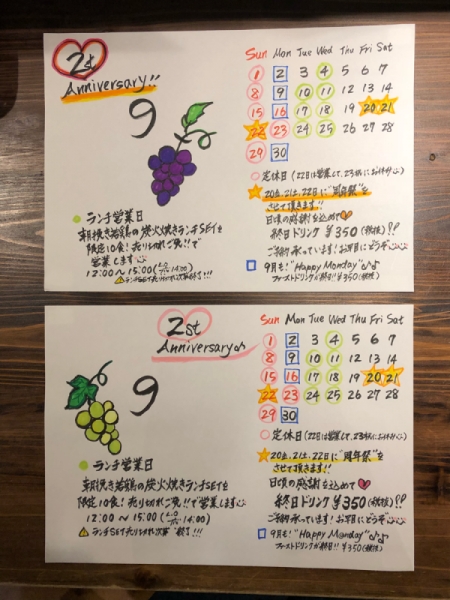 2st
Anniversary!!
9
Sun Mon Tue Wed Thu Fri Sat
1 2 3 4 5 6 7
8 9 10 11 12 13 14
15 16 17 18 19 20 21
22 23 24 25 26 27 28
29 30
○定休日(22日は営業して、23日にお休み
☆20日、21日、22日に"周年祭"を
させて頂きます!!
日頃の感謝を込めて♡
終日ドリンク ¥350(税抜)??
ご予約承っています!お早目にどうぞ
□9月も!"Happy Monday"♪♪
ファーストドリンクが終日!!¥350(税抜)
●ランチ営業日
朝挽き若鶏の炭火焼きランチSETを
限定10食!売り切れご免!!で
営業します
12:00~15:00(L.O 14:00)
⚠ランチSET売り切れ次第終了!!!
2st
Anniversary♪
9
Sun Mon Tue Wed Thu Fri Sat
1 2 3 4 5 6 7
8 9 10 11 12 13 14
15 16 17 18 19 20 21
22 23 24 25 26 27 28
29 30
○定休日(22日は営業して、23日にお休み
☆20日、21日、22日に"周年祭"を
させて頂きます!!
日頃の感謝を込めて♡
終日ドリンク ¥350(税抜)??
ご予約承っています!お早目にどうぞ
□9月も!"Happy Monday"♪♪
ファーストドリンクが終日!!¥350(税抜)
●ランチ営業日
朝挽き若鶏の炭火焼きランチSETを
限定10食!売り切れご免!!で営業します
12:00~15:00(L.O 14:00)
⚠ランチSET売り切れ次第"終了"!!!